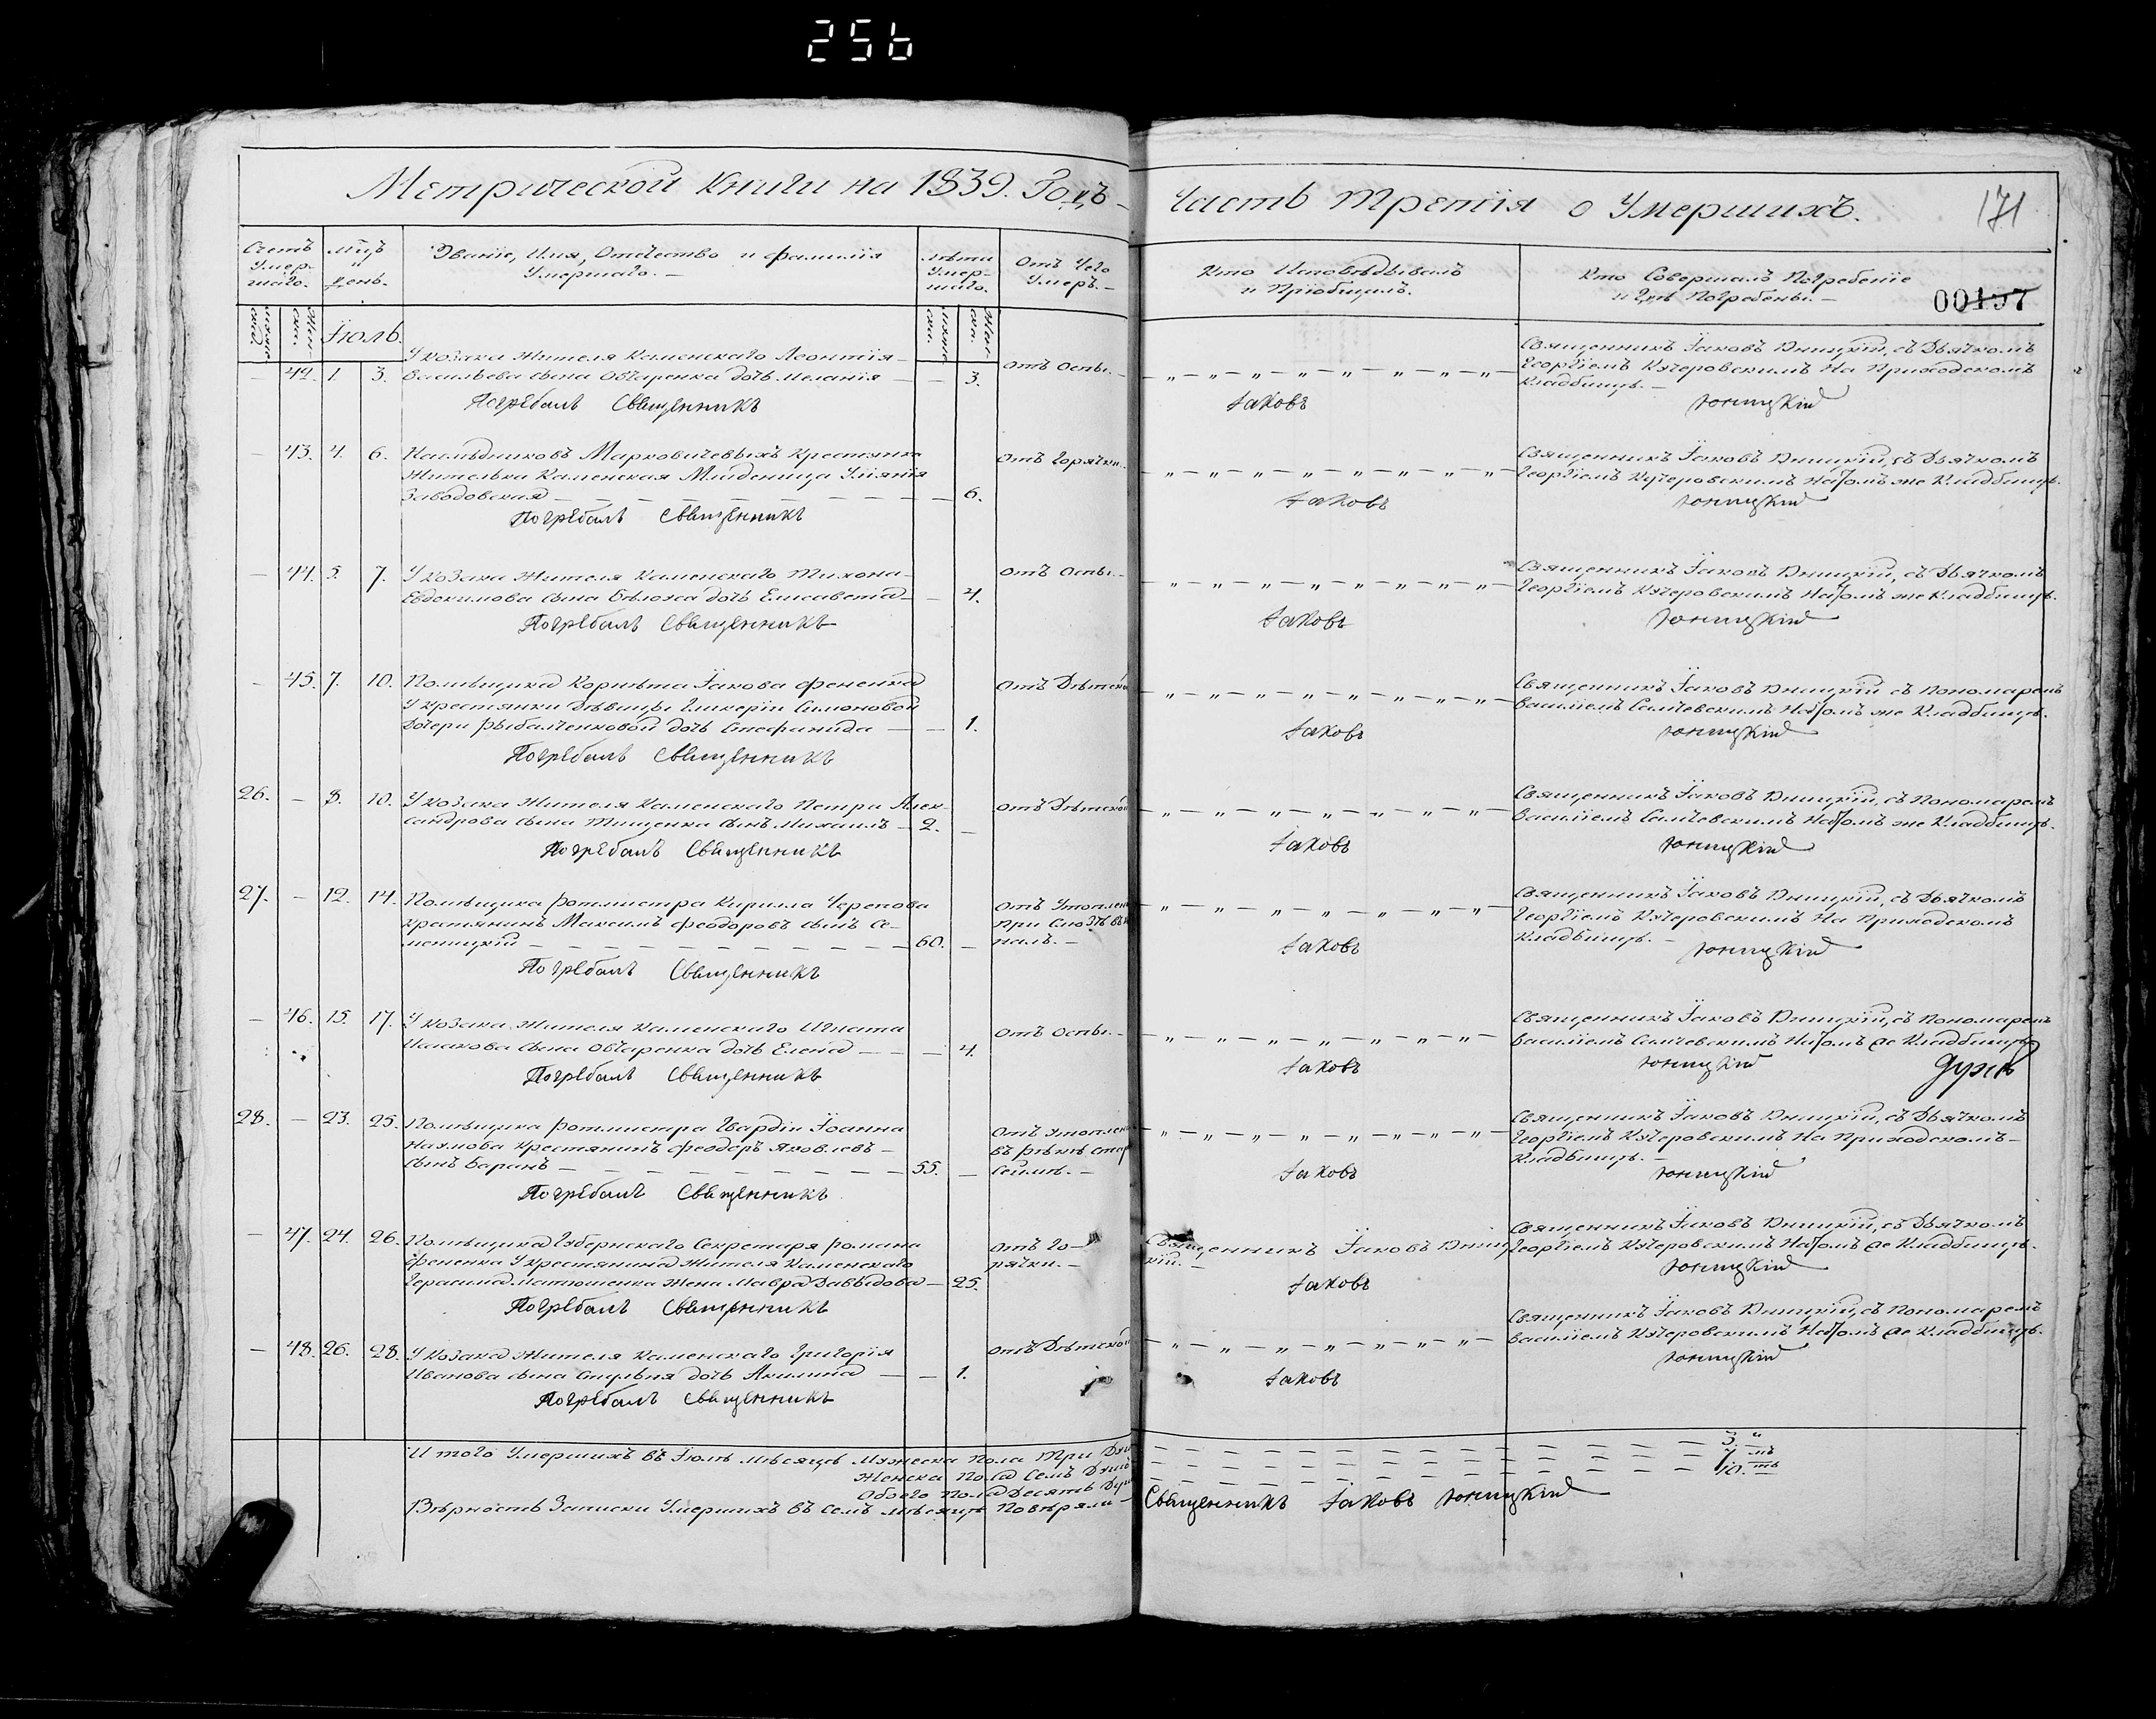 256
Метрической книги на 1839. Годъ
Часть Третія о Умершихъ.
171
Счетъ Умершаго.
Мцъ день.
Званіе, Имя, Отечество и фамилія
Умершаго. —
Лѣта Умершаго.
Отъ Чего
Умеръ. —
Кто Исповѣдывалъ
и Пріобщалъ.
Кто Совершалъ Погребеніе
и Гдѣ Погребены. —
Іюль.
У козака Жителя Каменскаго Леонтія
— 42. 1. 3. Васильева сына Овчаренка дочь Меланія — — 3. Отъ Оспы. —
Священникъ Іаковъ Вницкій, съ Дьячкомъ
Георгіемъ Кучеровскимъ На Приходскомъ
Кладбищѣ. —
Погребалъ Священникъ Іаковъ
— 43. 4. 6. Наслѣдниковъ Марковичевыхъ Крестянка
Жителька Каменская Младеница Уліянія
Заводовская — 6. Отъ Горячки.
Священникъ Іаковъ Вницкій, съ Дьячкомъ
Георгіемъ Кучеровскимъ На томъ же Кладбищѣ.
Погребалъ Священникъ Іаковъ
— 44. 5. 7. У козака Жителя Каменскаго Тихона
Евдокимова сына Бѣлоха дочь Елисавета — 4. Отъ Оспы. —
Священникъ Іаковъ Вницкій, съ Дьячкомъ
Георгіемъ Кучеровскимъ На томъ же Кладбищѣ.
Погребалъ Священникъ Іаковъ
— 45. 7. 10. Помѣщика Корнета Іакова Фененка
У крестянки Дѣвицы Гликеріи Симоновой
Дочери Рыбалченковой дочь Стефанида — — 1. Отъ Дѣтской
Священникъ Іаковъ Вницкій съ Пономаремъ
Василіемъ Самчевскимъ На томъ же Кладбищѣ.
Погребалъ Священникъ Іаковъ
26. — 8. 10. У козака Жителя Каменскаго Петра Алек-
сандрова сына Тищенка сынъ Михаилъ — 2. — Отъ Дѣтской
Священникъ Іаковъ Вницкій, съ Пономаремъ
Василіемъ Самчевскимъ На томъ же Кладбищѣ.
Погребалъ Священникъ Іаковъ
27. — 12. 14. Помѣщика Ротмистра Кирилла Черепова
Крестянинъ Максимъ Феодоровъ сынъ Се-
меницкій — 60. — Отъ
при
Священникъ Іаковъ Вницкій, съ Дьячкомъ
Георгіемъ Кучеровскимъ На Приходскомъ
Кладбищѣ. —
Погребалъ Священникъ Іаковъ
— 46. 15. 17. У козака Жителя Каменскаго Игната
Исакова сына Овчаренка дочь Елена — — 4. Отъ Оспы. —
Священникъ Іаковъ Вницкій, съ Пономаремъ
Василіемъ Самчевскимъ На томъ же Кладбищѣ.
Погребалъ Священникъ Іаковъ
28. — 23. 25. Помѣщика Ротмистра Гвардіи Іоанна
Нахмова Крестянинъ Феодоръ Яковлевъ
сынъ Баранъ — 55. — Отъ
въ рѣкѣ
Сеймѣ. —
Священникъ Іаковъ Вницкій, съ Дьячкомъ
Георгіемъ Кучеровскимъ На Приходскомъ
Кладбищѣ. —
Погребалъ Священникъ Іаковъ
— 47. 24. 26. Помѣщика Губернскаго Секретаря Романа
Фененка У крестянина Жителя Каменскаго
Герасима Матюшенка Жена Мавра Давидова — 25. Отъ Го-
рячки. —
Священникъ Іаковъ Вниц
кій. —
Священникъ Іаковъ Вницкій, съ Дьячкомъ
Георгіемъ Кучеровскимъ На томъ же Кладбищѣ.
Погребалъ Священникъ Іаковъ
— 48. 26. 28. У козака Жителя Каменскаго Григорія
Иванова сына дочь Акилина — — 1. Отъ Дѣтской
Священникъ Іаковъ Вницкій, съ Пономаремъ
Василіемъ Кучеровскимъ На томъ же Кладбищѣ.
Погребалъ Священникъ Іаковъ
И того Умершихъ въ Іюлѣ мѣсяцѣ Мужеска Пола Три — 3.
Женска Пола Семъ Душъ — 7.
Обоего Пола Десять — 10.
Вѣрность Записки Умершихъ въ семъ мѣсяцѣ Повѣряли — Священникъ Іаковъ